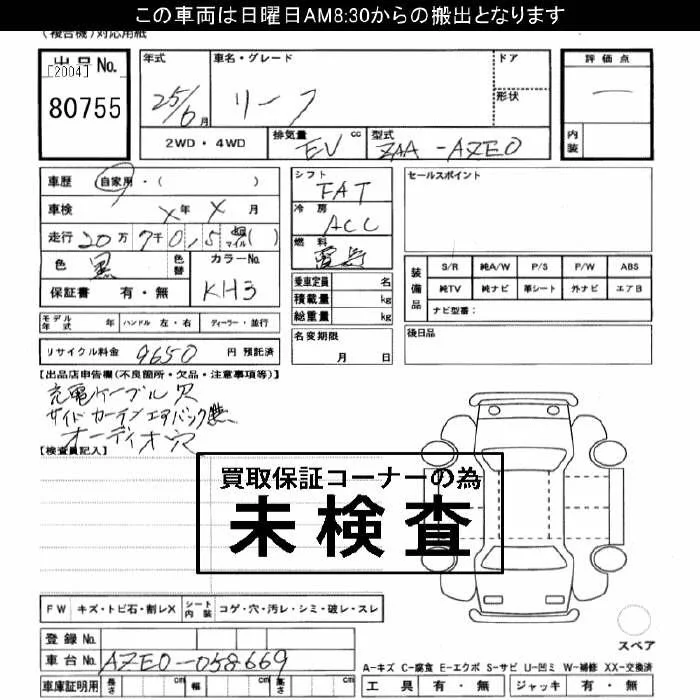 この車両は日曜日AM8:30からの搬出となります
(複合機)対応用紙
出品No.
[2004]
80755
年式
25/6月
車名・グレード
リーフ
ドア
形状
評価点
—
内装
2WD・4WD
排気量
EV cc
型式
ZAA-AZE0
車歴 自家用・( )
車検 X年 X月
色 黒 色替
カラーNo.
KH3
保証書 有・無
モデル年式 年 ハンドル 左・右 ディーラー・並行
リサイクル料金 9650 円 預託済
シフト
FAT
冷房
ACC
燃料
電気
乗車定員 名
積載量 kg
総重量 kg
名変期限
月 日
セールスポイント
装備品
S/R 純A/W P/S P/W ABS
純TV 純ナビ 革シート 外ナビ エアB
ナビ型番:
後日品
【出品店申告欄(不良箇所・欠品・注意事項等)】
充電ケーブル欠
サイドカーテンエアバック無
オーディオ欠
【検査員記入】
買取保証コーナーの為
未検査
FW キズ・トビ石・割レX シート内装 コゲ・穴・汚レ・シミ・破レ・スレ
登録No.
車台No. AZE0-058669
車庫証明用 長さ cm 幅 cm 高さ cm
スペア
A-キズ C-腐食 E-エクボ S-サビ U-凹ミ W-補修 XX-交換済
工具 有・無 ジャッキ 有・無